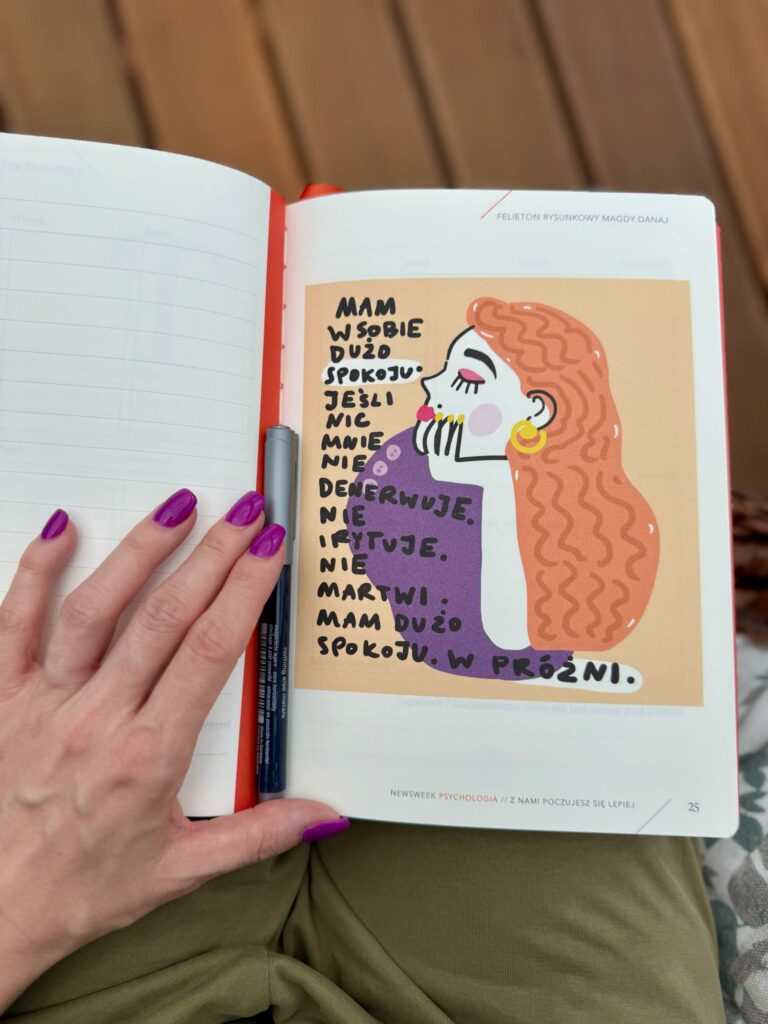 FELIETON RYSUNKOWY MAGDY DANAJ
MAM
W SOBIE
DUŻO
SPOKOJU.
JEŚLI
NIC
MNIE
NIE
DENERWUJE.
NIE
IRYTUJE.
NIE
MARTWI.
MAM DUŻO
SPOKOJU. W PRÓŻNI.
NEWSWEEK PSYCHOLOGIA // Z NAMI POCZUJESZ SIĘ LEPIEJ
25